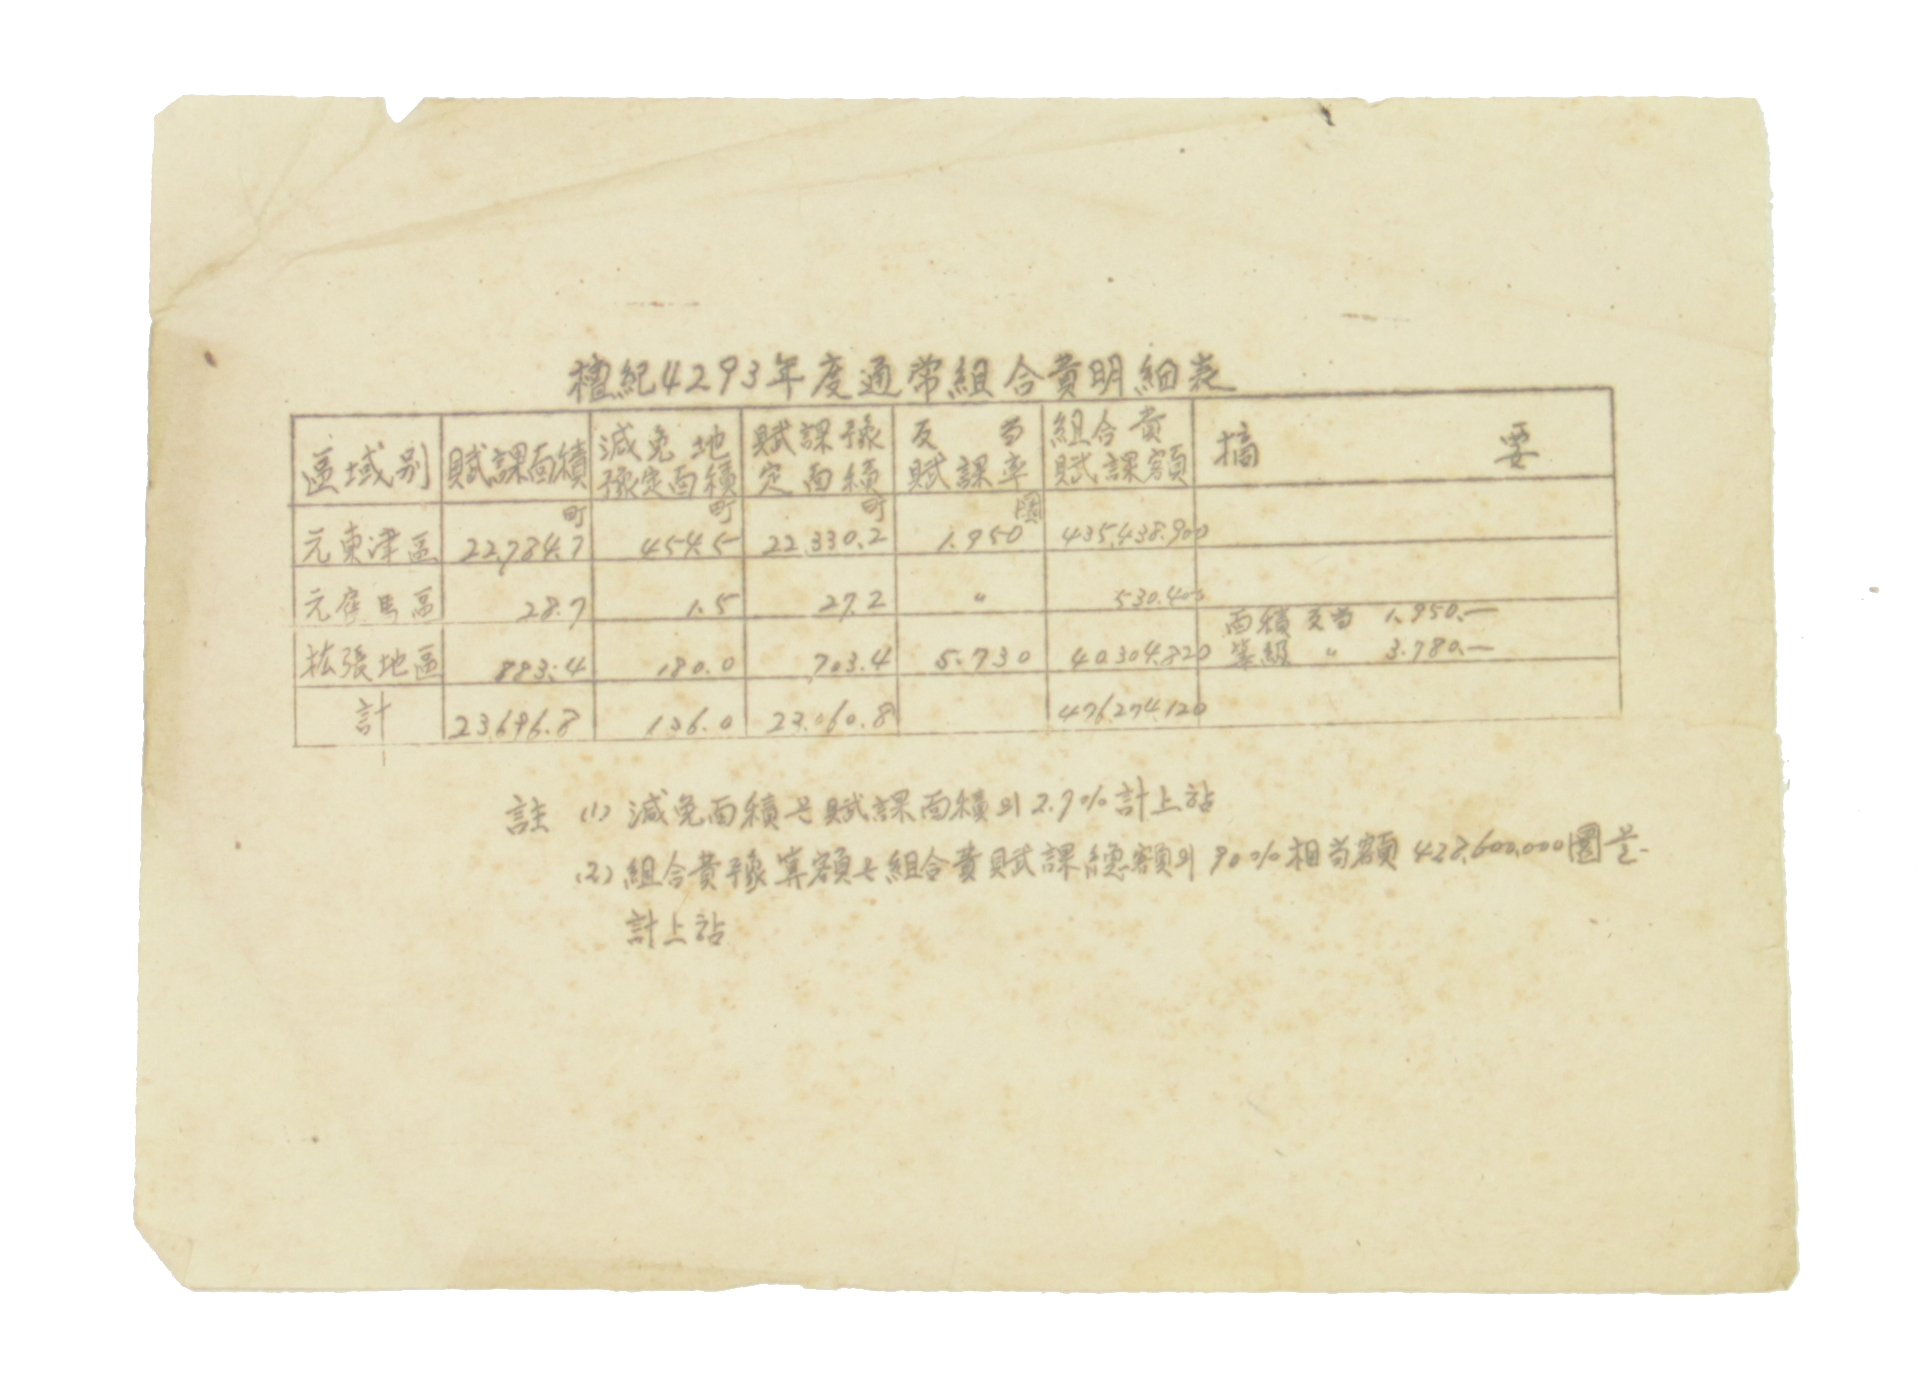 檀紀4293年度通常組合費明細表
區域別 賦課面積 減免地豫定面積 賦課豫定面積 反当賦課率 組合費賦課額 摘要
町 町 町 圜
元東津區 22,784.7 454.5 22,330.2 1.950 435,438.900
元庫馬區 28.7 1.5 27.2 〃 530.400
拡張地區 883.4 180.0 703.4 5.730 40.304.820 面積反当 1.950.—
等級 〃 3.780.—
計 23,696.8 136.0 23.060.8 476.274.120
註 (1) 減免面積은 賦課面積의 2.7% 計上함
(2) 組合費豫算額은 組合費賦課總額의 90% 相当額 428,600,000圜을
計上함